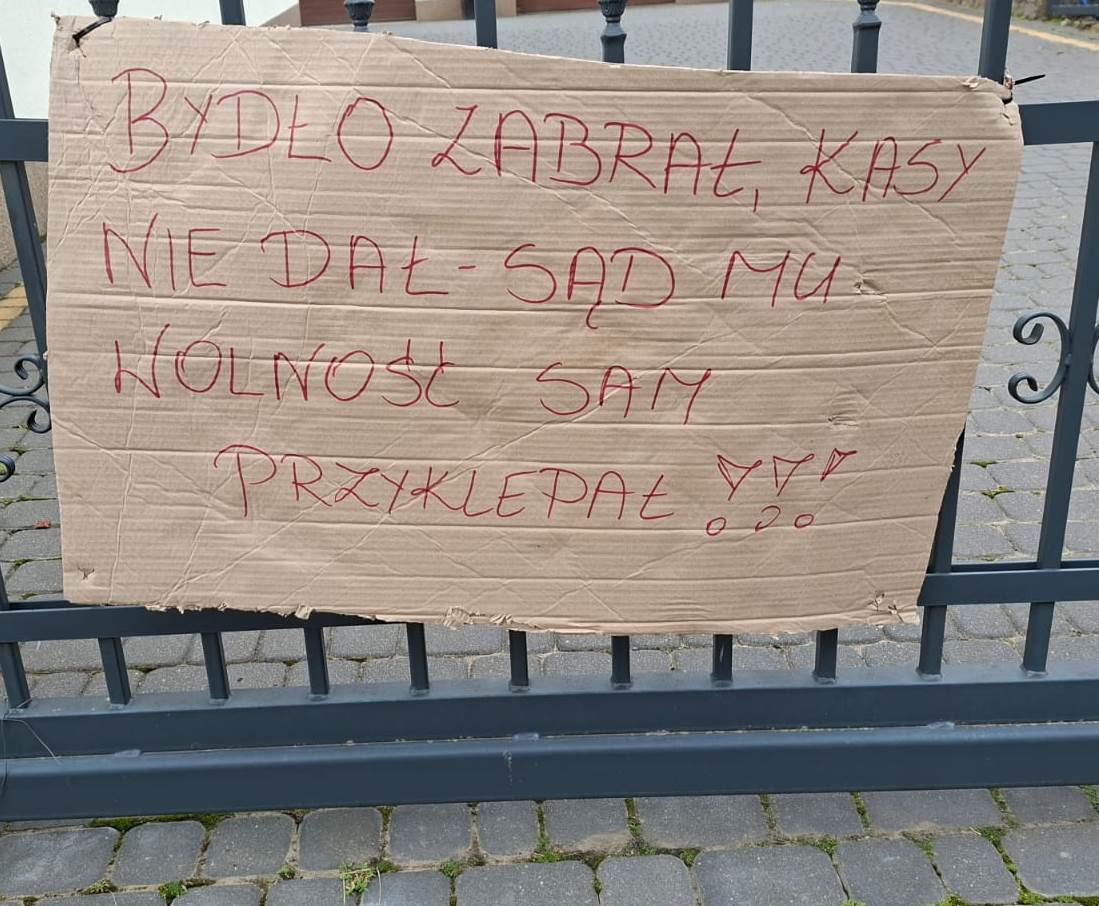 BYDŁO ZABRAŁ, KASY
NIE DAŁ - SĄD MU
WOLNOŚĆ SAM
PRZYKLEPAŁ !!!